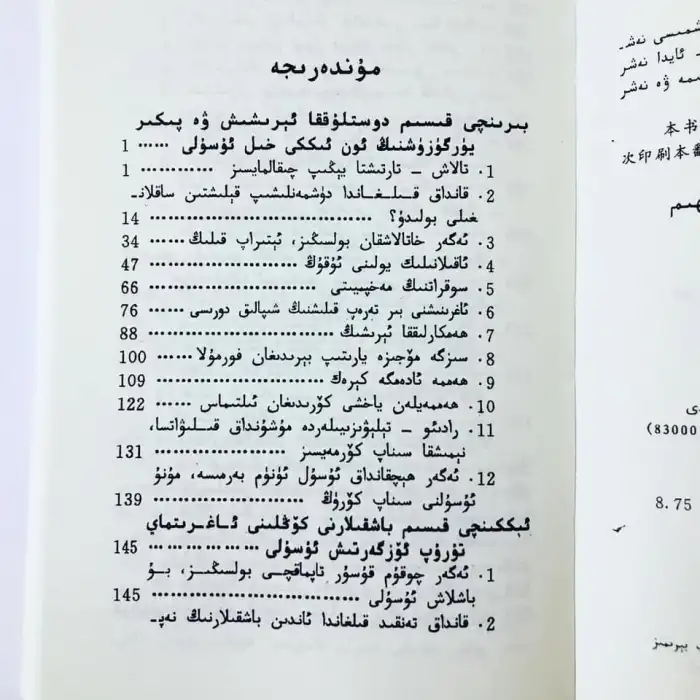 مۇندەرىجە
بىرىنچى قىسىم دوستلۇققا ئېرىشىش ۋە پىكىر
يۈرگۈزۈشنىڭ ئون ئىككى خىل ئۇسۇلى ...... 1
1. تالاش - تارتىشتا يېڭىپ چىقالمايسىز ............ 1
2. قانداق قىلغاندا دۈشمەنلىشىپ قېلىشتىن ساقلانـ
غىلى بولىدۇ؟ .............................. 14
3. ئەگەر خاتالاشقان بولسىڭىز، ئېتىراپ قىلىڭ ...... 34
4. ئاقىلانىلىك يولىنى ئۇقۇڭ ..................... 47
5. سوقراتنىڭ مەخپىيىتى ..................... 66
6. ئاغرىنىشنى بىر تەرەپ قىلىشنىڭ شىپالىق دورىسى ... 76
7. ھەمكارلىققا ئېرىشىڭ ..................... 88
8. سىزگە مۆجىزە يارىتىپ بېرىدىغان فورمۇلا ...... 100
9. ھەممە ئادەمگە كېرەك ........................ 109
10. ھەممەيلەن ياخشى كۆرىدىغان ئىلتىماس ...... 122
11. رادىئو - تېلېۋىزىيىلەردە مۇشۇنداق قىلىۋاتسا،
نېمىشقا سىناپ كۆرمەيسىز .................. 131
12. ئەگەر ھېچقانداق ئۇسۇل ئۈنۈم بەرمىسە، مۇنۇ
ئۇسۇلنى سىناپ كۆرۈڭ .................. 139
ئىككىنچى قىسىم باشقىلارنى كۆڭلىنى ئاغرىتماي
تۇرۇپ ئۆزگەرتىش ئۇسۇلى .................. 145
1. ئەگەر چوقۇم قۇسۇر تاپماقچى بولسىڭىز، بۇ
باشلاش ئۇسۇلى .............................. 145
2. قانداق تەنقىد قىلغاندا ئاندىن باشقىلارنىڭ نەپـ
شىمىسى نەشـ
ـ ئايدا نەشر
ـمە ۋە نەشر
本书
次印刷本翻
ھىم
(83000
8.75